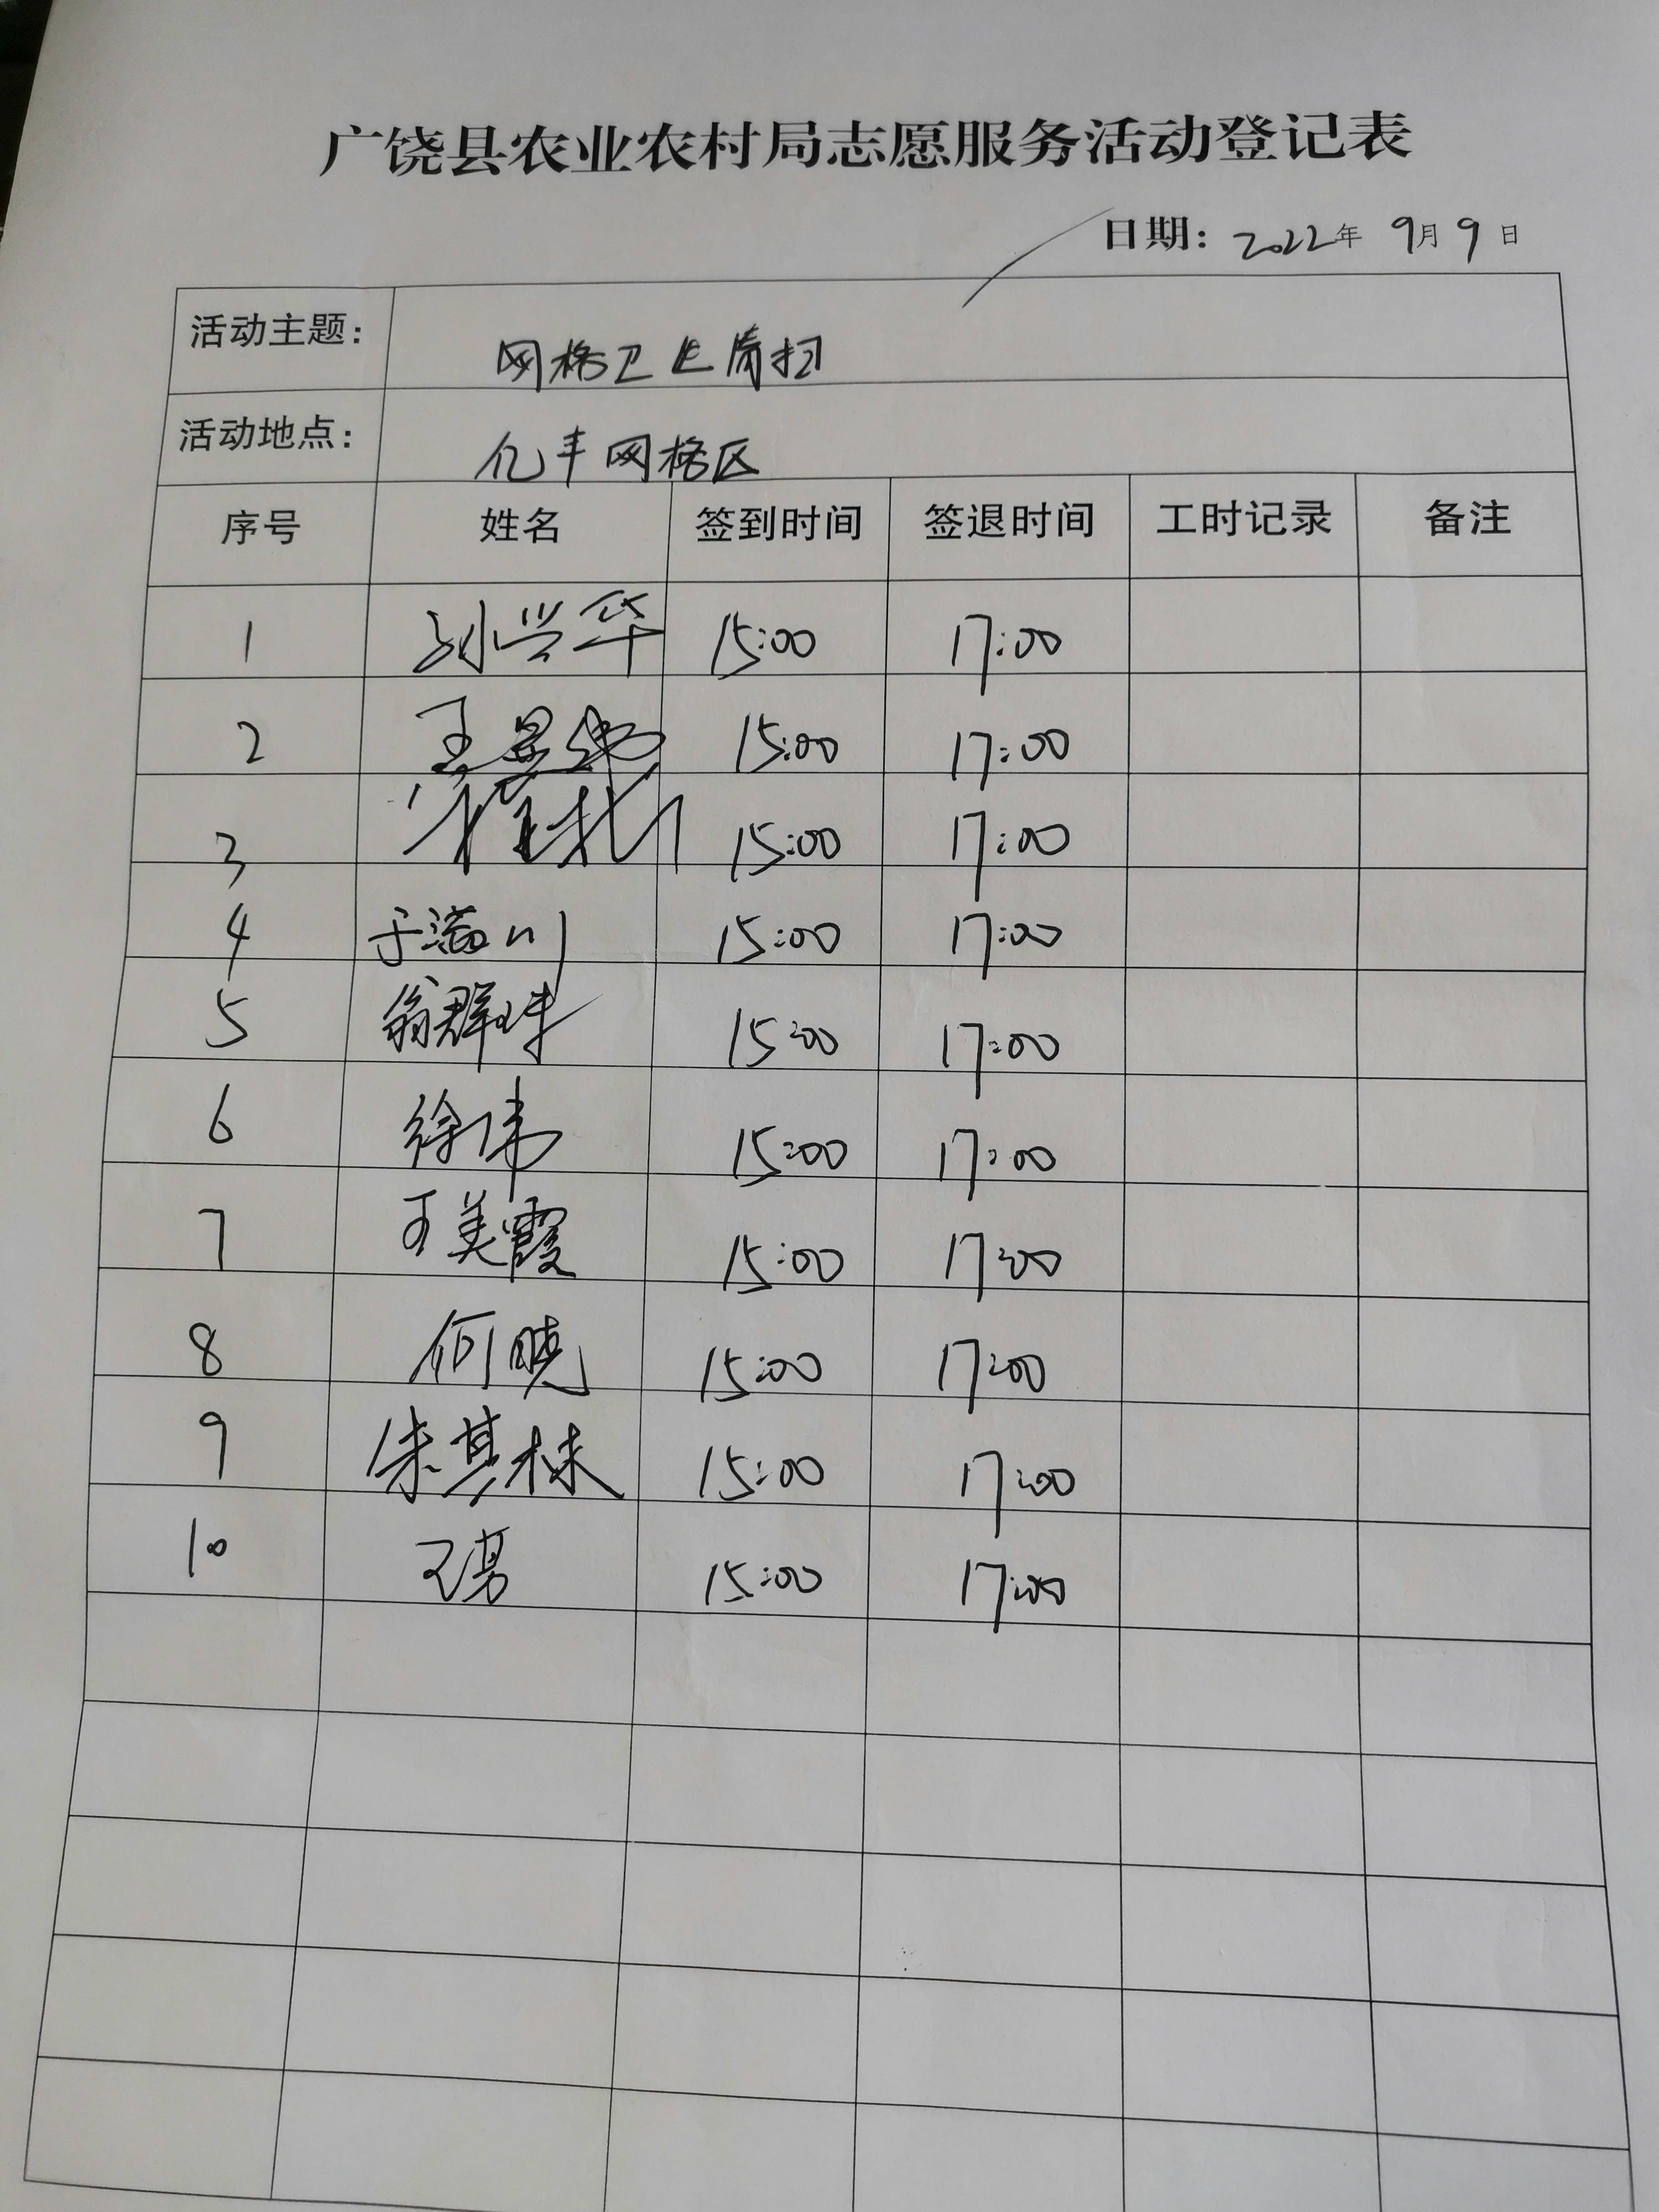 广饶县农业农村局志愿服务活动登记表
日期: 2022年 9月 9日
活动主题: 网格卫生清扫
活动地点: 亿丰网格区
序号 姓名 签到时间 签退时间 工时记录 备注
1 刘兴华 15:00 17:00
2 王 15:00 17:00
3 15:00 17:00
4 于满川 15:00 17:00
5 翁群 15:00 17:00
6 徐伟 15:00 17:00
7 王美霞 15:00 17:00
8 何晓 15:00 17:00
9 朱其 15:00 17:00
10 王勇 15:00 17:00